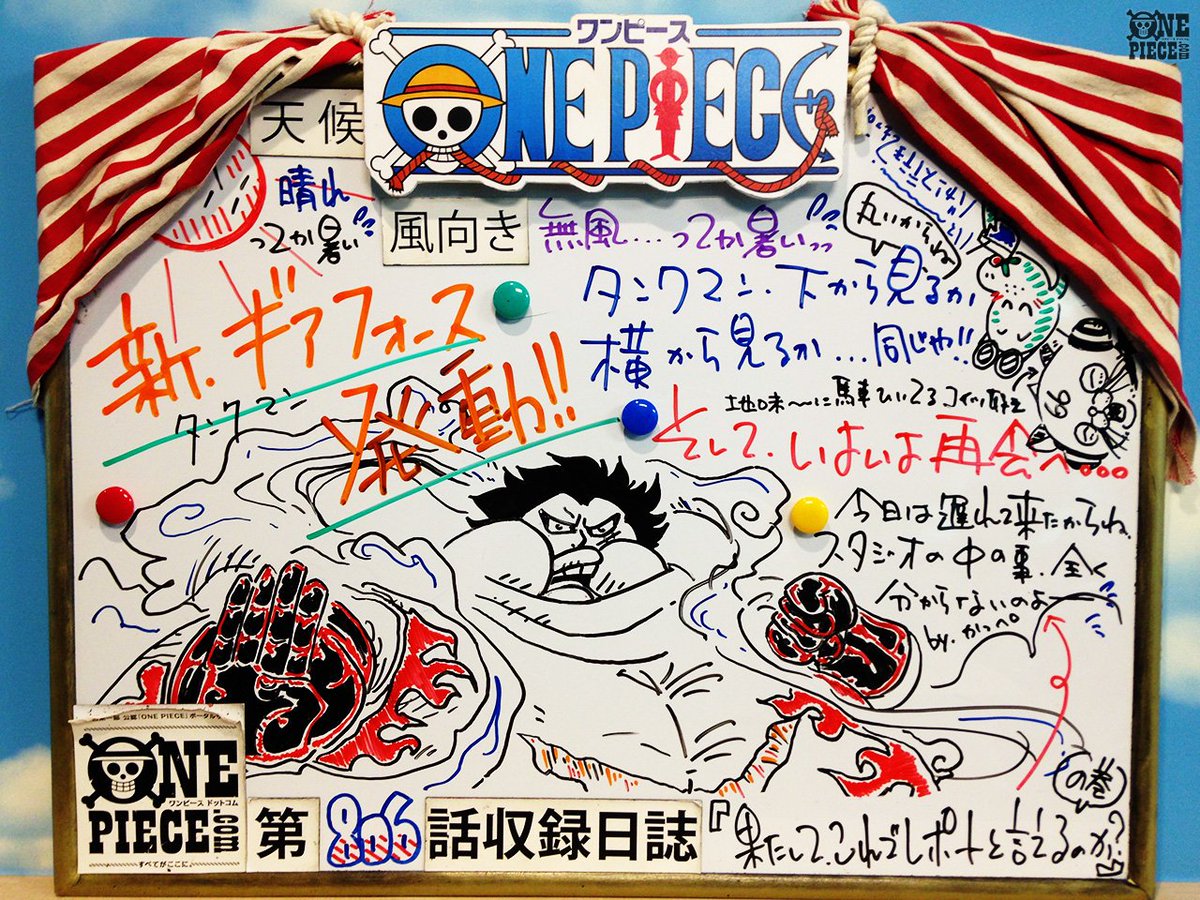 ワンピース
ONE PIECE
ONE
PIECE.com
天候
晴れ
ってか暑い
風向き
無風…ってか暑いっっ
丸いからね
新.ギアフォース
タンクマン
発動!!
タンクマン.下から見るか
横から見るか…同じや!!
地味〜に馬車ひいてるコイツ好き
そして.いよいよ再会へ…
今日は遅れて来たからね.
スタジオの中の事.全く
分からないのよー
by.かっぺ。
公認「ONE PIECE」ポータル
ONE
ワンピース ドットコム
PIECE.com
すべてがここに。
第806話収録日誌
『来たして.これでレポートと言えるのか?』
の巻